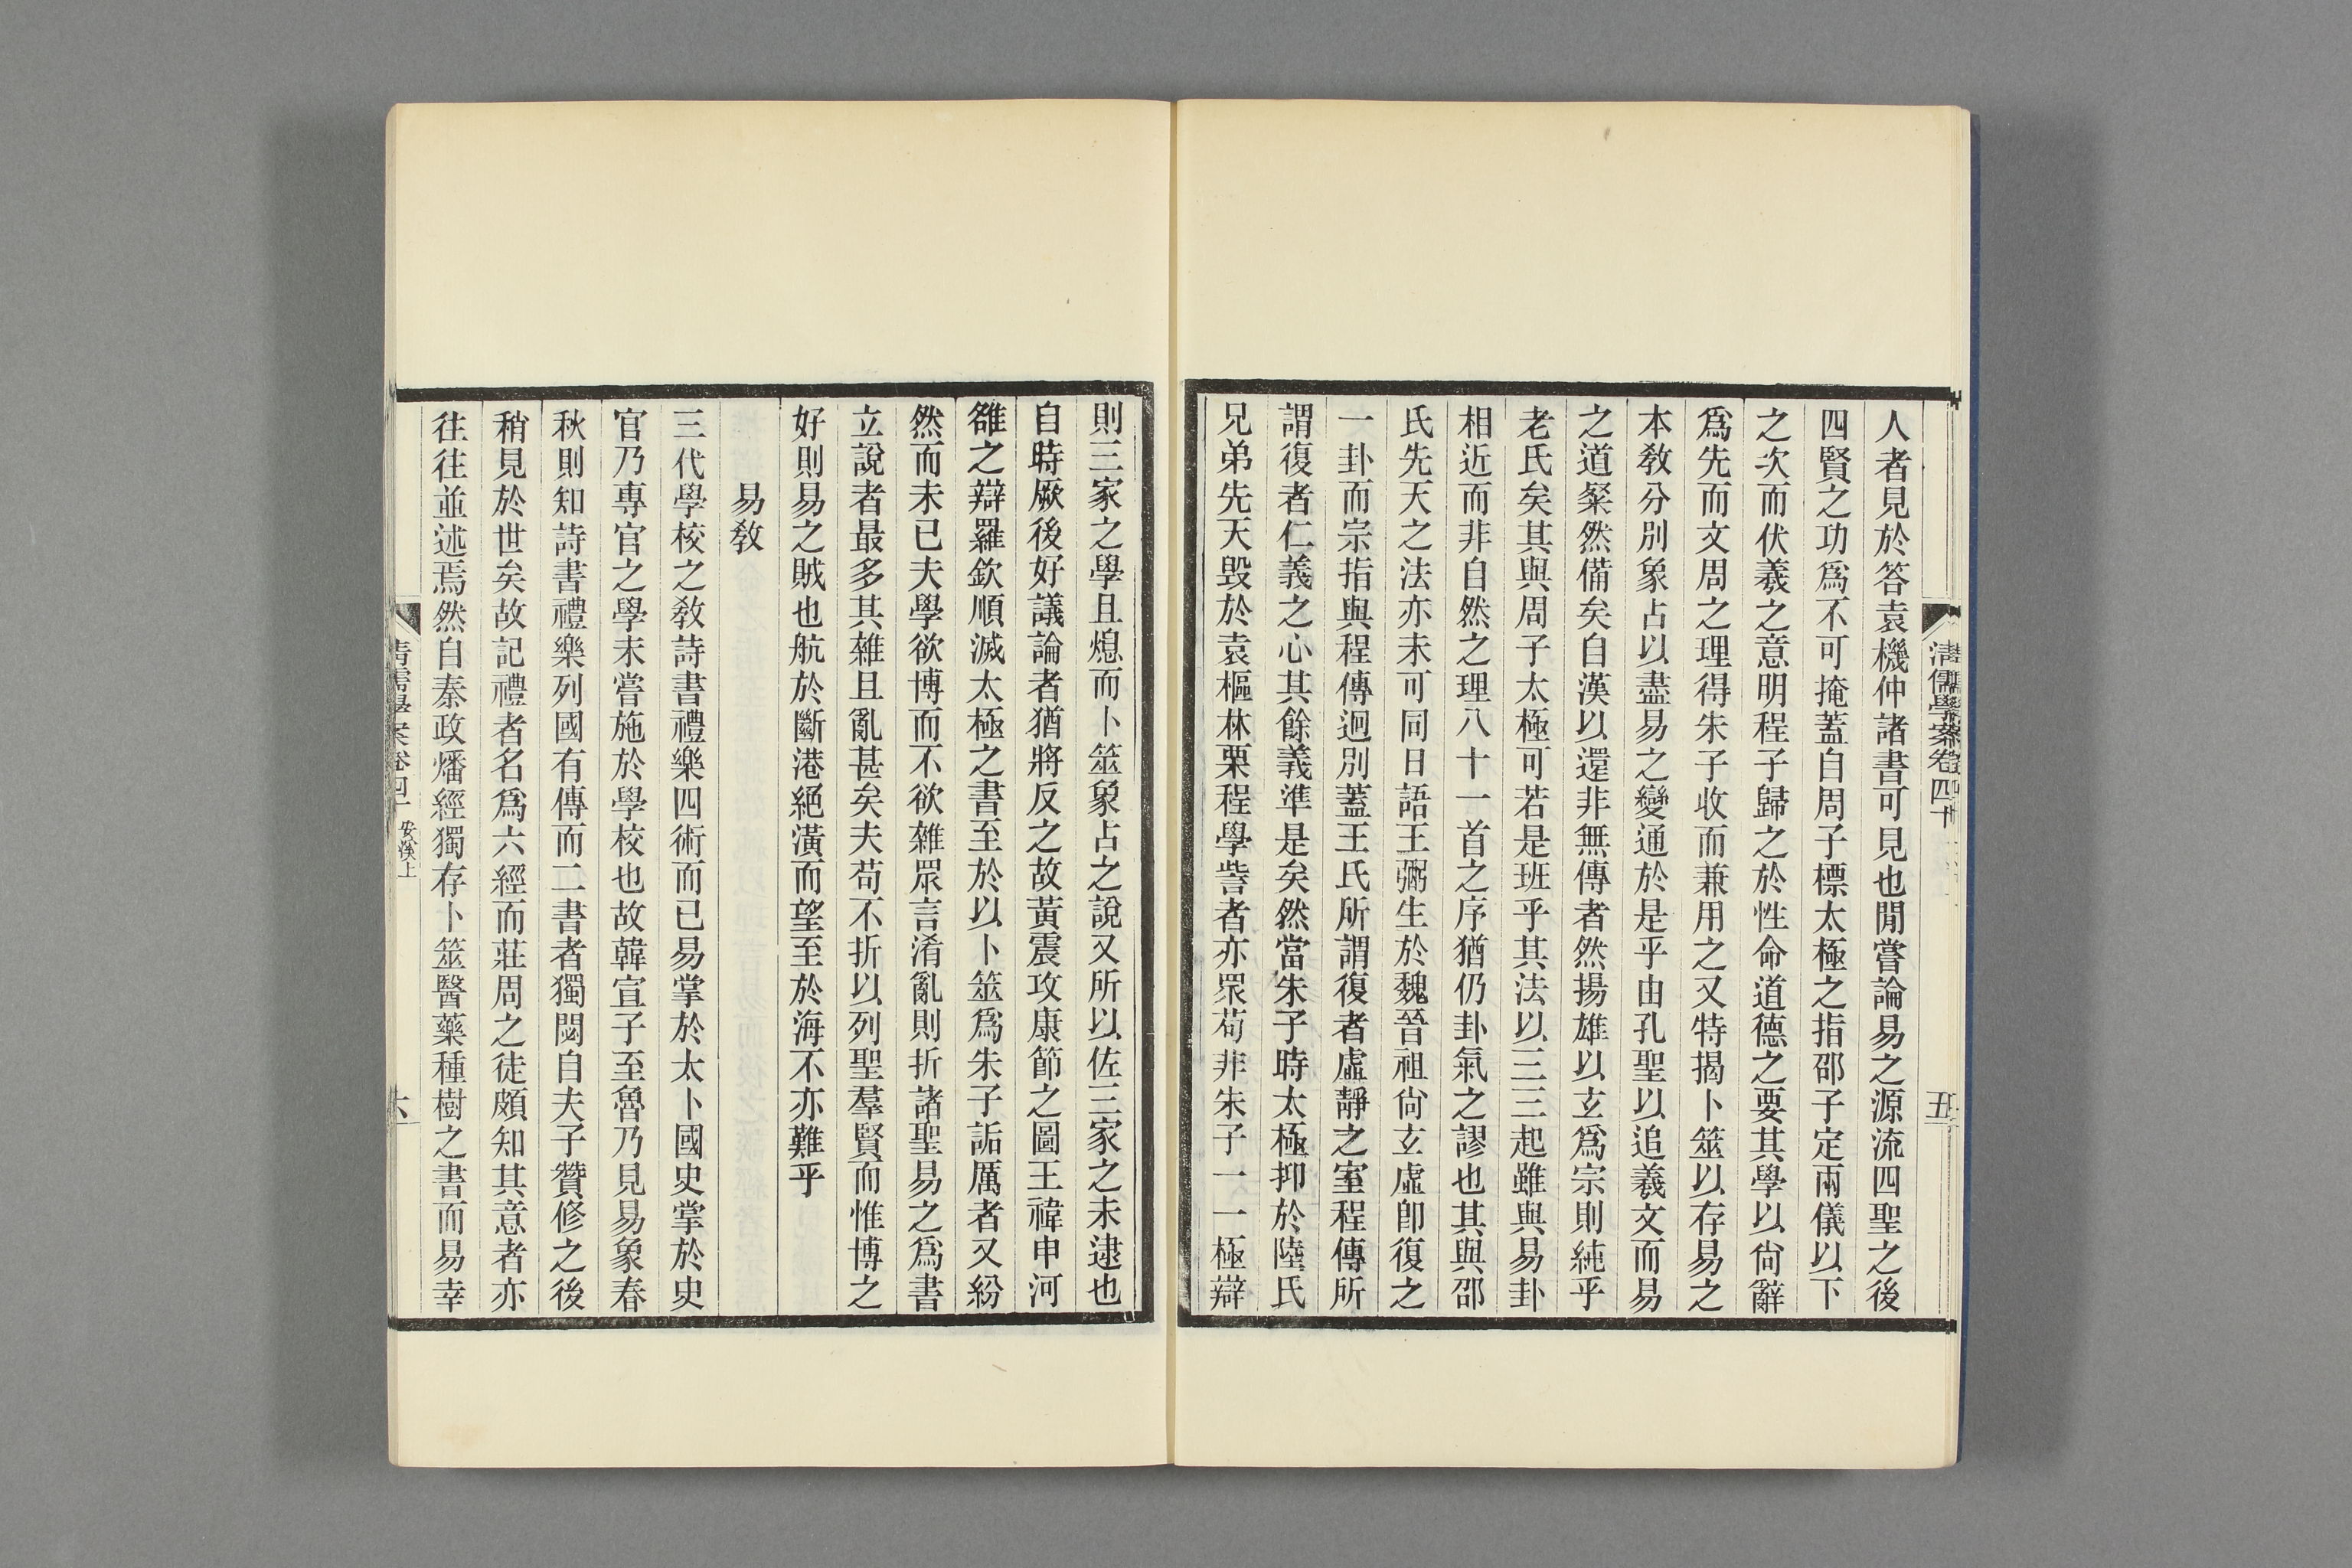 清儒學案卷四十
五
人者見於答袁機仲諸書可見也閒嘗論易之源流四聖之後
四賢之功爲不可掩蓋自周子標太極之指邵子定兩儀以下
之次而伏羲之意明程子歸之於性命道德之要其學以尙辭
爲先而文周之理得朱子收而兼用之又特揭卜筮以存易之
本敎分別象占以盡易之變通於是乎由孔聖以追羲文而易
之道粲然備矣自漢以還非無傳者然揚雄以玄爲宗則純乎
老氏矣其與周子太極可若是班乎其法以三三起雖與易卦
相近而非自然之理八十一首之序猶仍卦氣之謬也其與邵
氏先天之法亦未可同日語王弼生於魏晉祖尙玄虛卽復之
一卦而宗指與程傳迥別蓋王氏所謂復者虛靜之室程傳所
謂復者仁義之心其餘義準是矣然當朱子時太極抑於陸氏
兄弟先天毀於袁樞林栗程學訾者亦眾苟非朱子一一極辯
則三家之學且熄而卜筮象占之說又所以佐三家之未逮也
自時厥後好議論者猶將反之故黃震攻康節之圖王禕申河
雒之辯羅欽順滅太極之書至於以卜筮爲朱子詬厲者又紛
然而未已夫學欲博而不欲雜眾言淆亂則折諸聖易之爲書
立說者最多其雜且亂甚矣夫苟不折以列聖羣賢而惟博之
好則易之賊也航於斷港絕潢而望至於海不亦難乎
易敎
三代學校之敎詩書禮樂四術而已易掌於太卜國史掌於史
官乃專官之學未嘗施於學校也故韓宣子至魯乃見易象春
秋則知詩書禮樂列國有傳而二書者獨閟自夫子贊修之後
稍見於世矣故記禮者名爲六經而莊周之徒頗知其意者亦
往往並述焉然自秦政燔經獨存卜筮醫藥種樹之書而易幸
清儒學案卷四十 安溪上
六